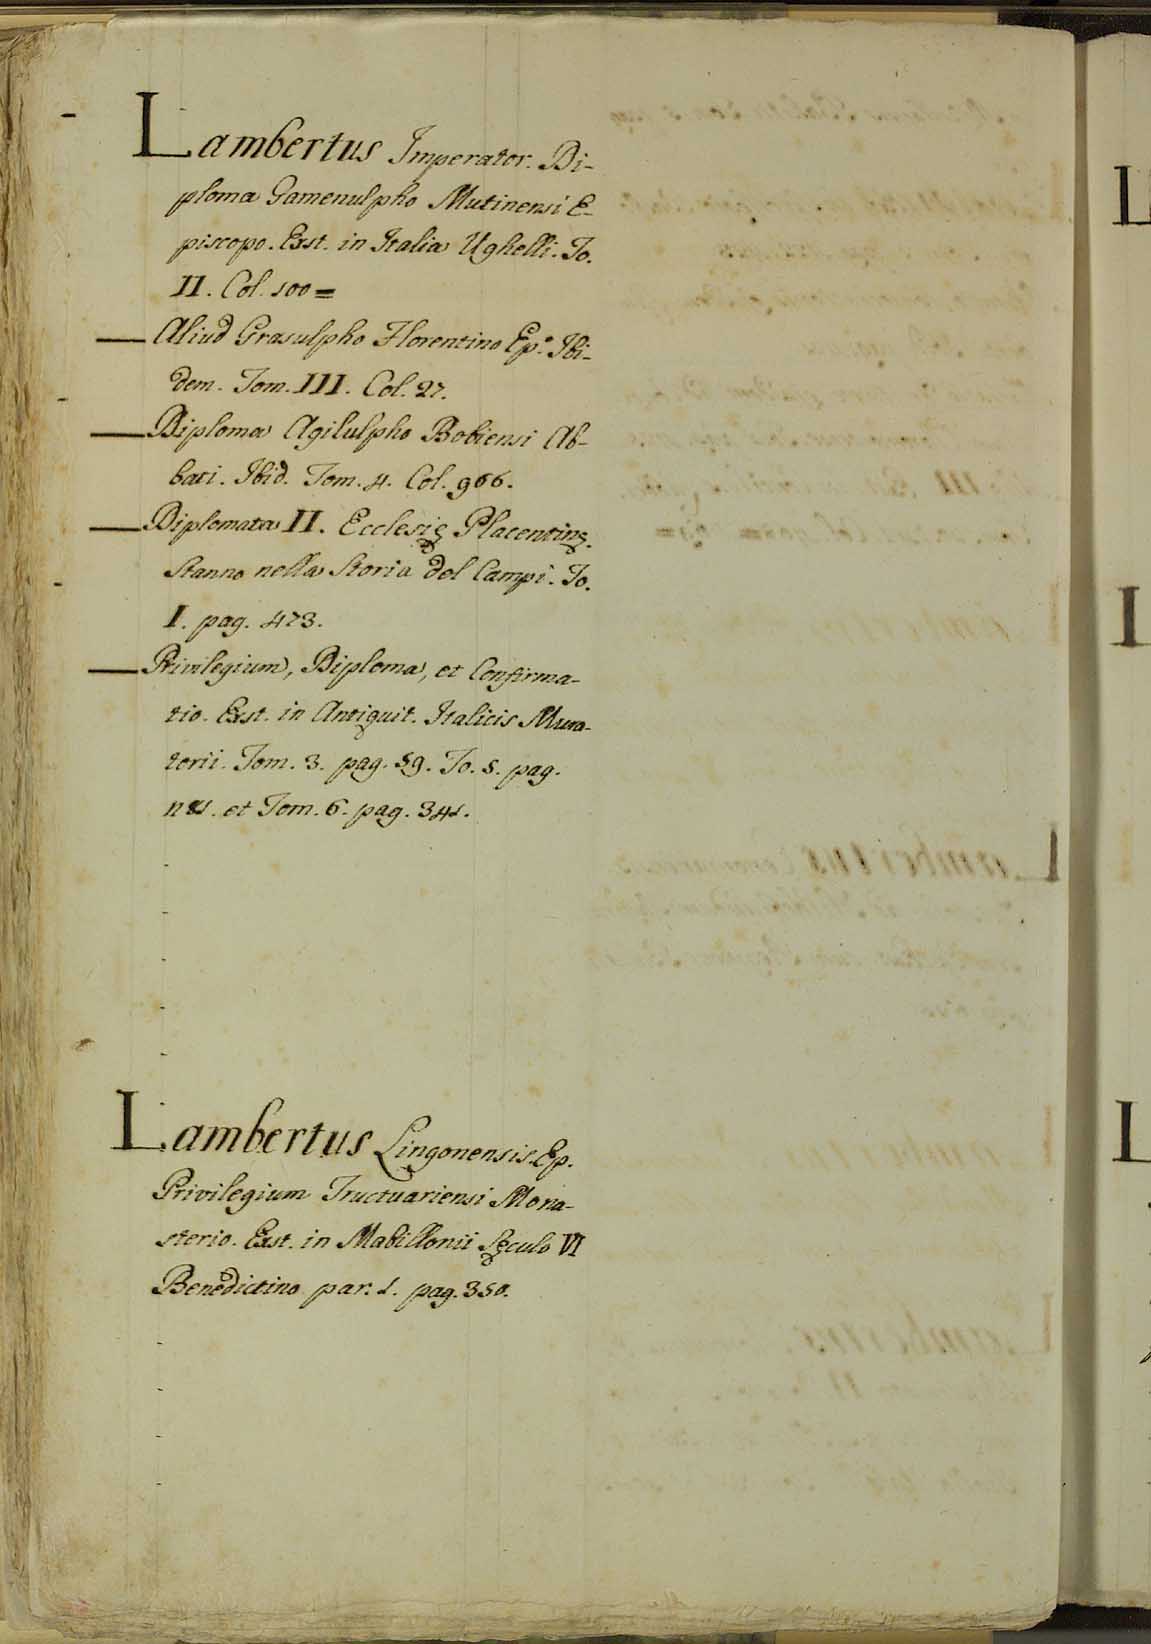 Lambertus Imperator. Di-
ploma Gamenulpho Mutinensi E-
piscopo. Exst. in Italia Ughelli. To.
II. Col. 100=
— Aliud Grasulpho Florentino Ep.º Ibi-
dem. Tom. III. Col. 27.
— Diploma Agilulpho Bobiensi Ab-
bati. Ibid. Tom. 4. Col. 966.
— Diplomata II. Ecclesię Placentinę.
Stanno nella Storia del Campi. To.
I. pag. 473.
— Privilegium, Diploma, et Confirma-
tio. Exst. in Antiquit. Italicis Mura-
torii. Tom. 3. pag. 59. To. 5. pag.
et Tom. 6. pag. 341.
Lambertus Lingonensis Ep.
Privilegium Fructuariensi Mona-
sterio. Exst. in Mabillonii Sęculo VI
Benedictino par. 1. pag. 350.
L
L
L